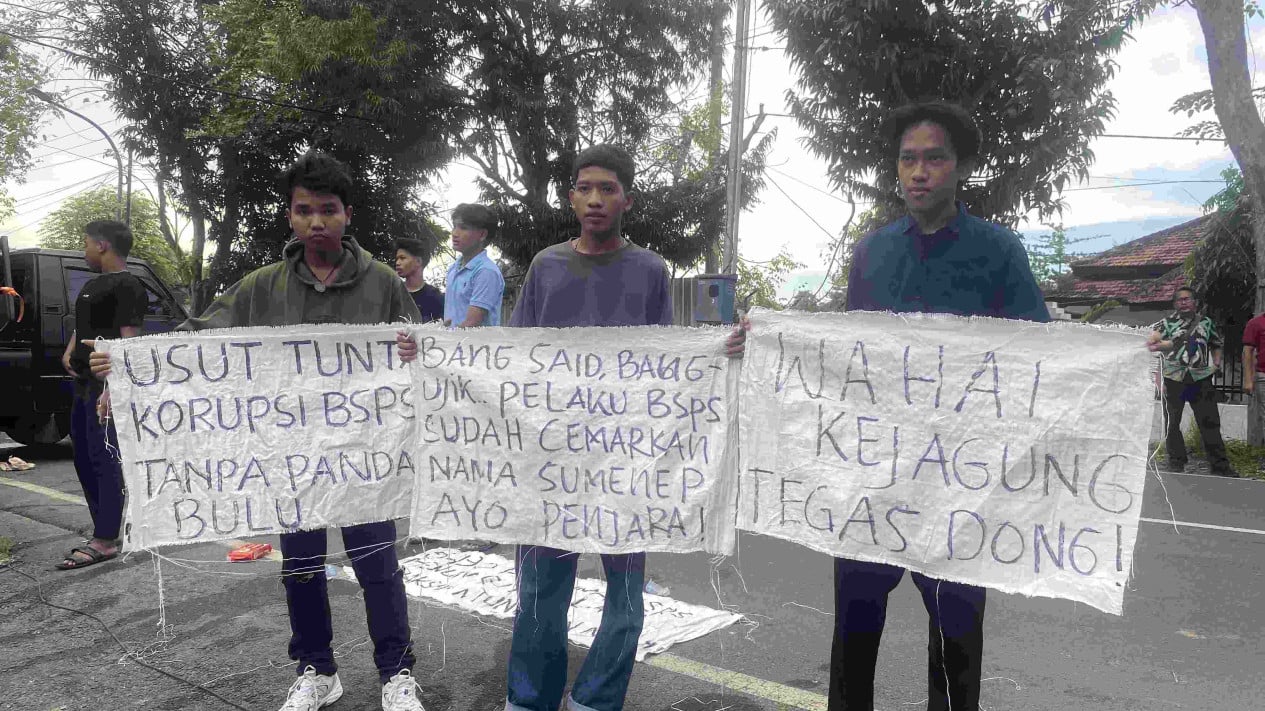 USUT TUNT
KORUPSI BSPS
TANPA PANDA
BULU
BANG SAID, BANG
UJIK.. PELAKU BSPS
SUDAH CEMARKAN
NAMA SUMENEP
AYO PENJARA!
WAHAI
KEJAGUNG
TEGAS DONG!